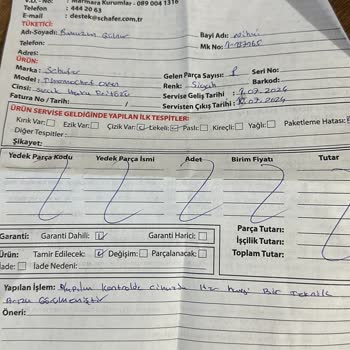 Marmara Kurumlar - 089 004 1316
Telefon : 444 20 63
E-mail : destek@schafer.com.tr
TÜKETİCİ:
Adı-Soyadı: Bayi Adı:
Telefon: Mk No:
Adres:
ÜRÜN:
Marka : Schafer Gelen Parça Sayısı: 1 Seri No:
Model : Thermochef oven Renk: Siyah Barkod:
Cinsi: sıcak Hava Servise Geliş Tarihi: .07.2024
Fatura No / Tarihi: / Servisten Çıkış Tarihi: .07.2024
ÜRÜN SERVİSE GELDİĞİNDE YAPILAN İLK TESPİTLER:
Kırık Var: Ezik Var: Çizik Var: Lekeli: Paslı: Kireçli: Yağlı: Paketleme Hatası:
Diğer Tespitler:
Şikayet:
Yedek Parça Kodu Yedek Parça İsmi Adet Birim Fiyatı Tutar
Parça Tutarı:
İşçilik Tutarı:
Toplam Tutar:
Garanti: Garanti Dahili: Garanti Harici:
Ürün: Tamir Edilecek: Değişim: Parçalanacak:
İade: İade Nedeni:
Yapılan İşlem: Yapılan kontrolde cihazda Her hangi Bir Teknik
Arıza Görülmemiştir
Öneri: